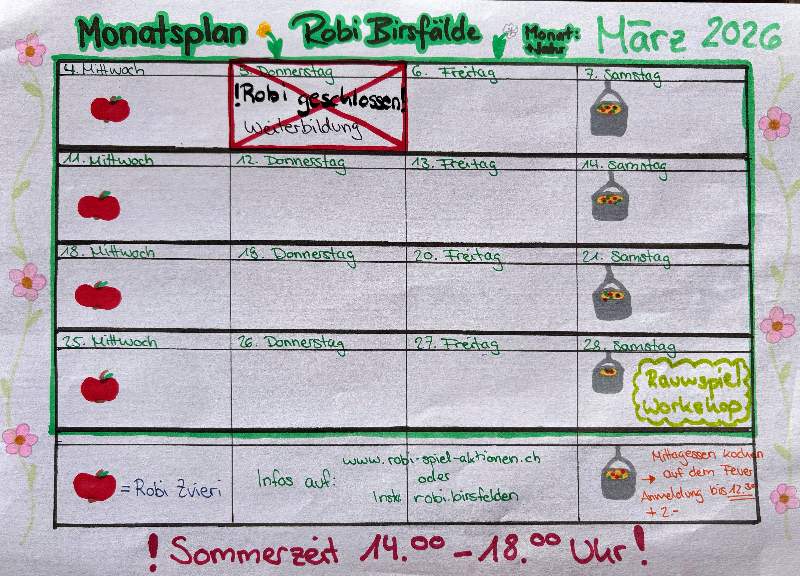 Monatsplan Robi Birsfälde Monat: März 2026
Natur
4. Mittwoch 5. Donnerstag 6. Freitag 7. Samstag
!Robi geschlossen!
Weiterbildung
11. Mittwoch 12. Donnerstag 13. Freitag 14. Samstag
18. Mittwoch 19. Donnerstag 20. Freitag 21. Samstag
25. Mittwoch 26. Donnerstag 27. Freitag 28. Samstag
Rauwspiel
Workshop
= Robi Zvieri
Infos auf: www.robi-spiel-aktionen.ch
oder
Inst: robi.birsfelden
Mittagessen kochen
→ auf dem Feuer
Anmeldung bis 12.30
+ 2.-
! Sommerzeit 14.00 - 18.00 Uhr!